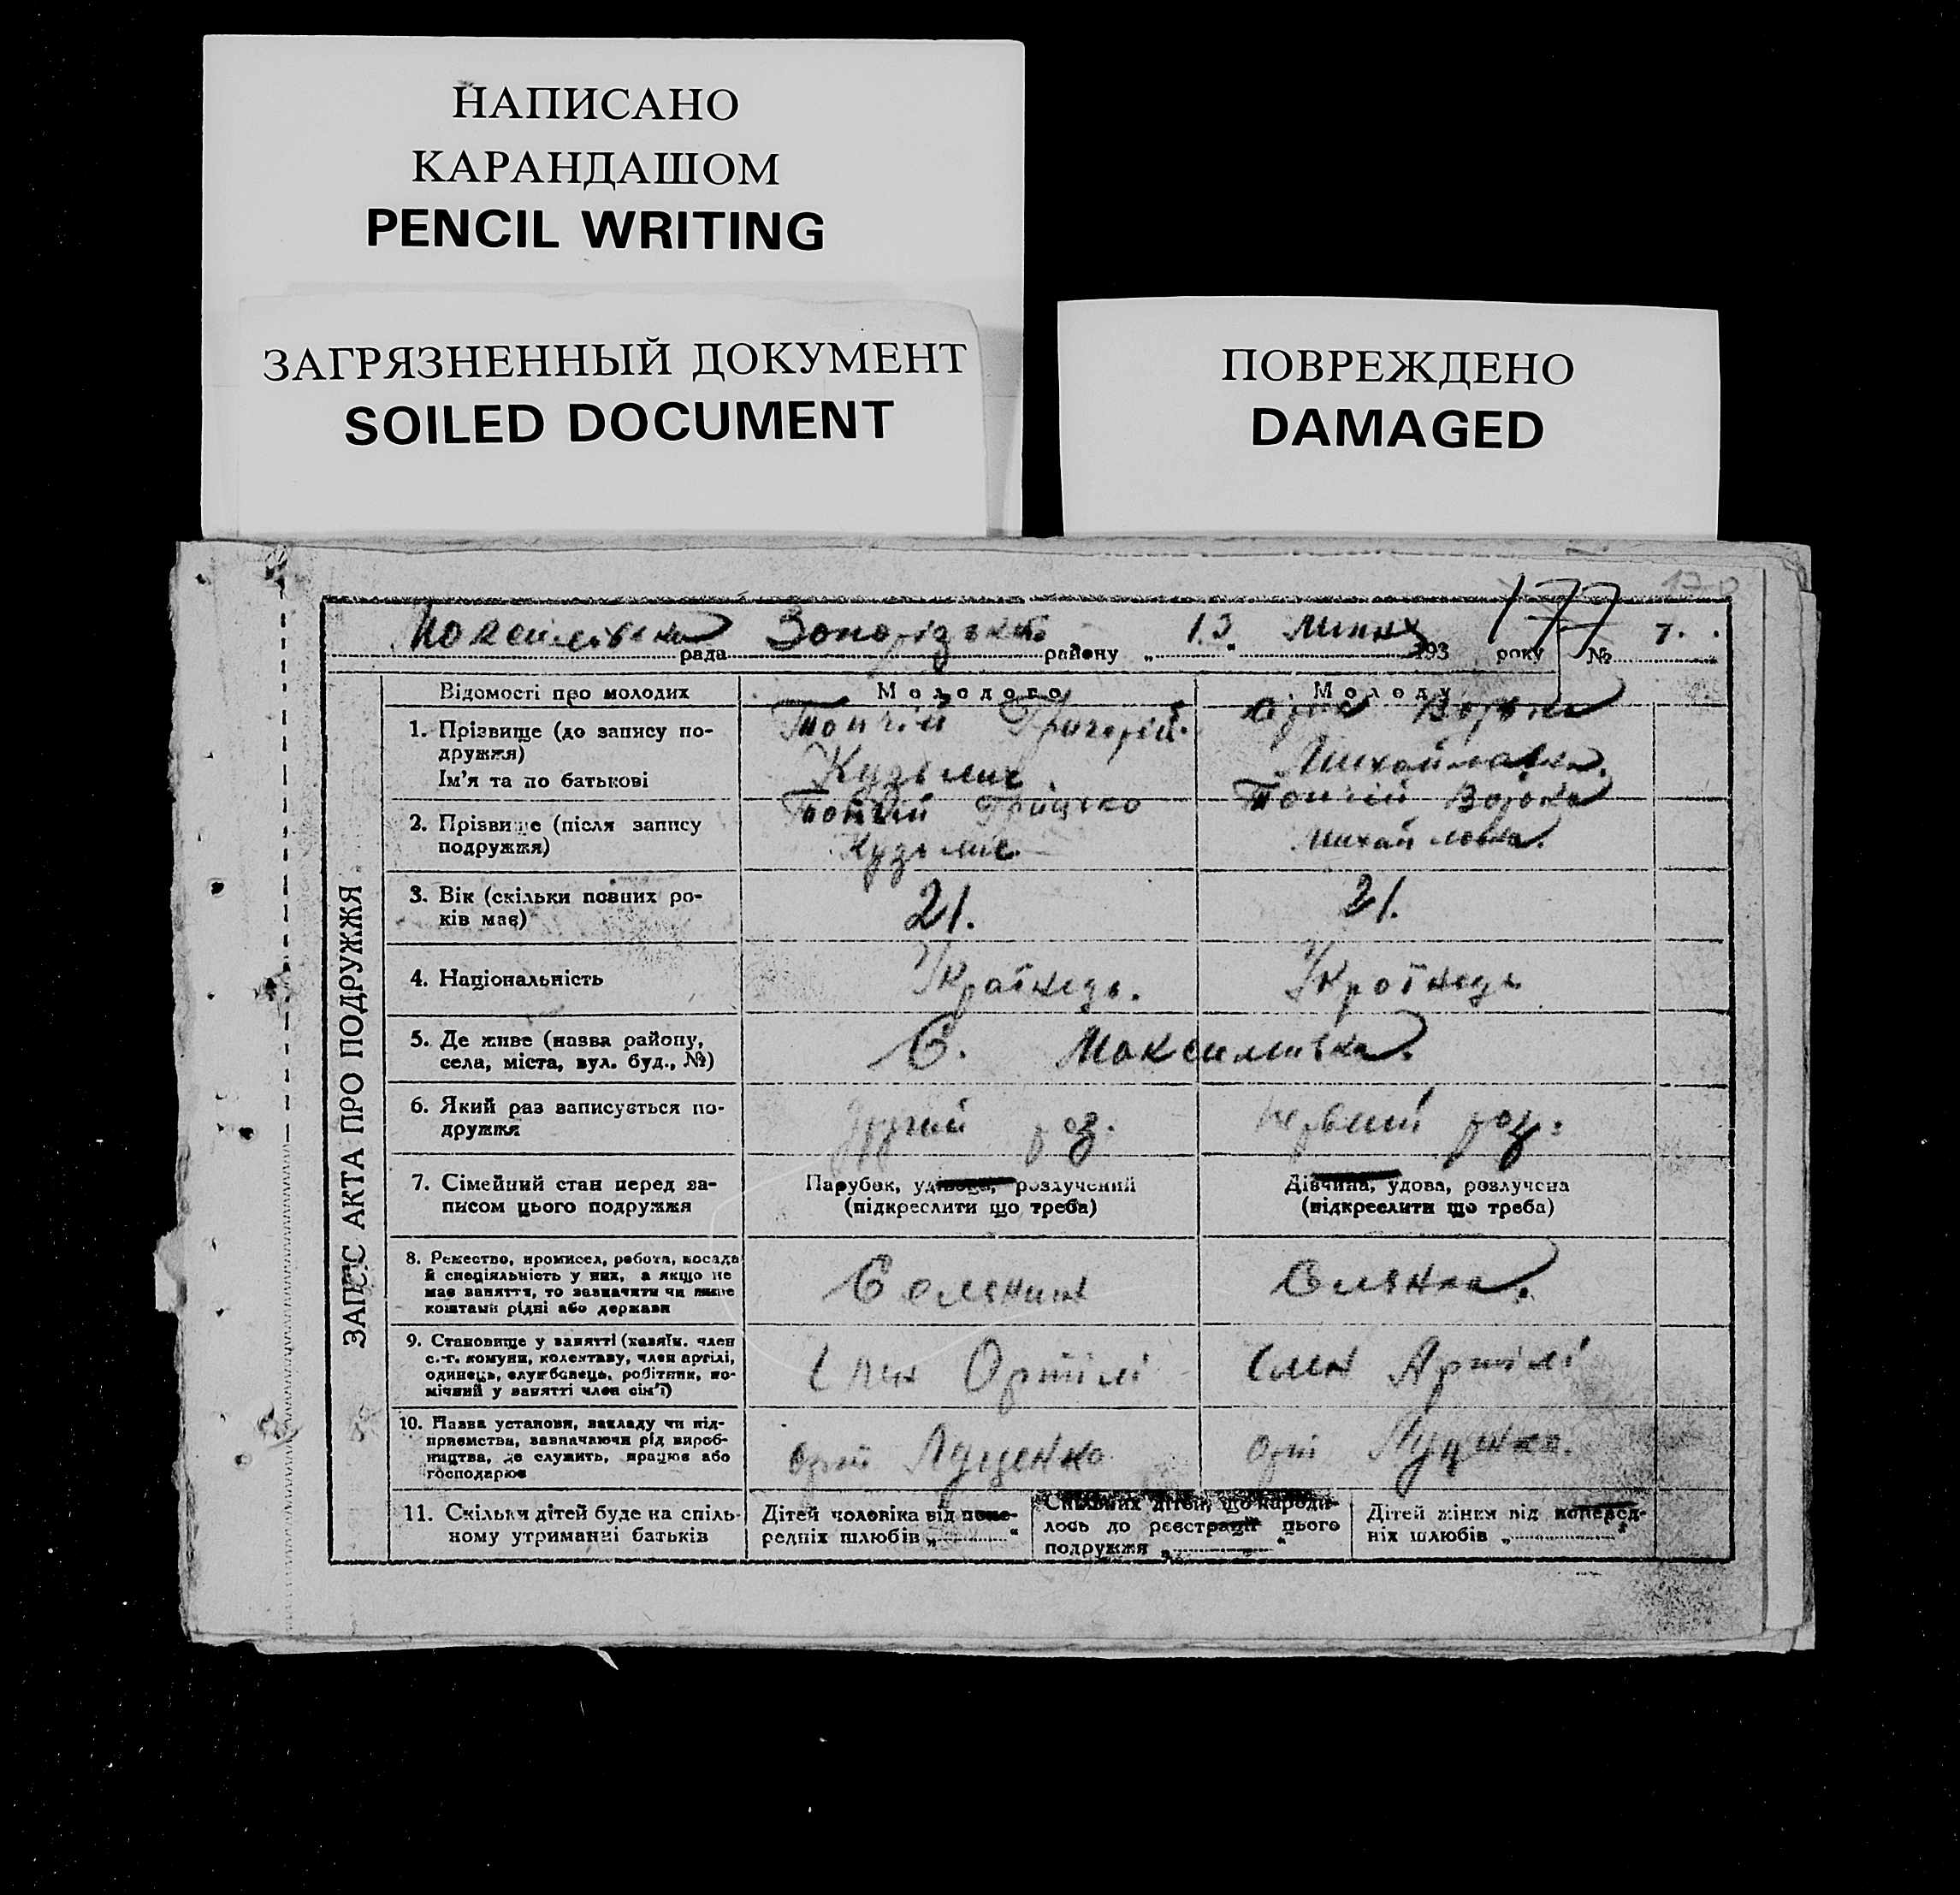 НАПИСАНО
КАРАНДАШОМ
PENCIL WRITING
ЗАГРЯЗНЕННЫЙ ДОКУМЕНТ
SOILED DOCUMENT
ПОВРЕЖДЕНО
DAMAGED
177
рада району „13“ 193 року № 7.
ЗАПИС АКТА ПРО ПОДРУЖЖЯ
Відомості про молодих
Молодого
Молоду
1. Прізвище (до запису по-
дружжя)
Ім'я та по батькові
Топчій Григорій
Кузьмич
Михайловна.
2. Прізвище (після запису
подружжя)
Топчій Грицько
Кузьмич
Топчій
Михайловна.
3. Вік (скільки повних ро-
ків має)
21.
21.
4. Національність
Українець.
Українець
5. Де живе (назва району,
села, міста, вул. буд., №)
С. Максимівка.
6. Який раз записується по-
дружжя
Другий раз.
Первий раз.
7. Сімейний стан перед за-
писом цього подружжя
Парубок, удівець, розлучений
(підкреслити що треба)
Дівчина, удова, розлучена
(підкреслити що треба)
8. Ремество, промисел, робота, посада
й спеціяльність у них, а якщо не
має заняття, то зазначити чи живе
коштами рідні або держави
Селянин
9. Становище у занятті (хазяїн. член
с.-г. комуни, колективу, член артілі,
одинець, службовець, робітник, по-
мічний у занятті член сім'ї)
Член Артілі
Член Артілі
10. Назва установи, закладу чи під-
приємства, зазначаючи рід вироб-
ництва, де служить, працює або
господарює
11. Скільки дітей буде на спіль-
ному утриманні батьків
Дітей чоловіка від попе-
редніх шлюбів „ “
Спільних дітей, що народи-
лось до реєстрації цього
подружжя „ “
Дітей жінки від поперед-
ніх шлюбів „ “